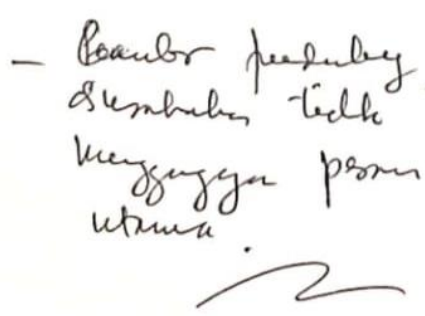 - Gambar pendukung
diusahakan tidak
mengganggu pesan
utama.